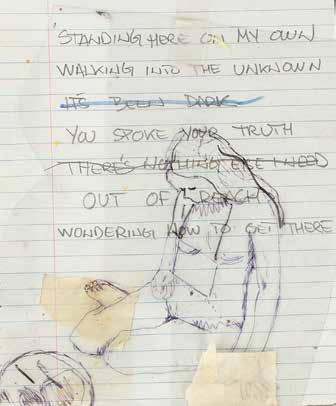 STANDING HERE ON MY OWN
WALKING INTO THE UNKNOWN
IT'S BEEN DARK
YOU SPOKE YOUR TRUTH
THERE'S NOTHING ELSE I NEED
OUT OF REACH
WONDERING HOW TO GET THERE